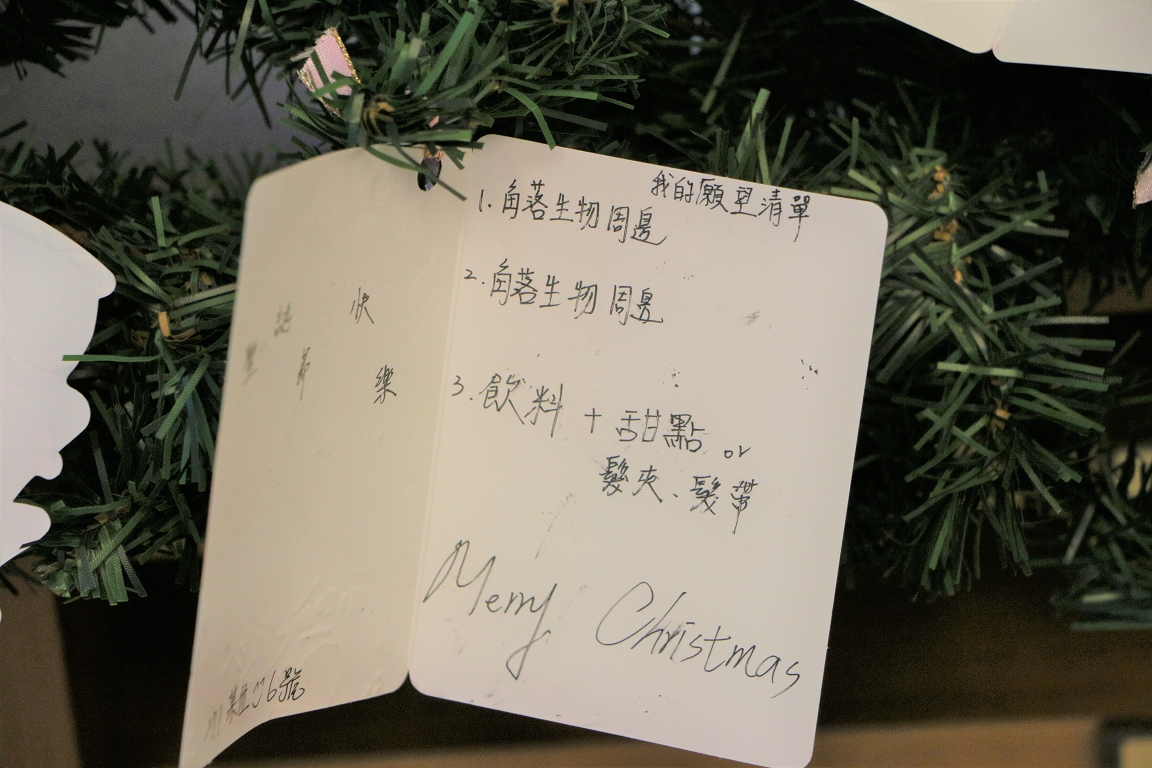 我的願望清單
1. 角落生物周邊
2. 角落生物周邊
3. 飲料 + 甜點 or
髮夾、髮帶
Merry Christmas
聖誕節快樂